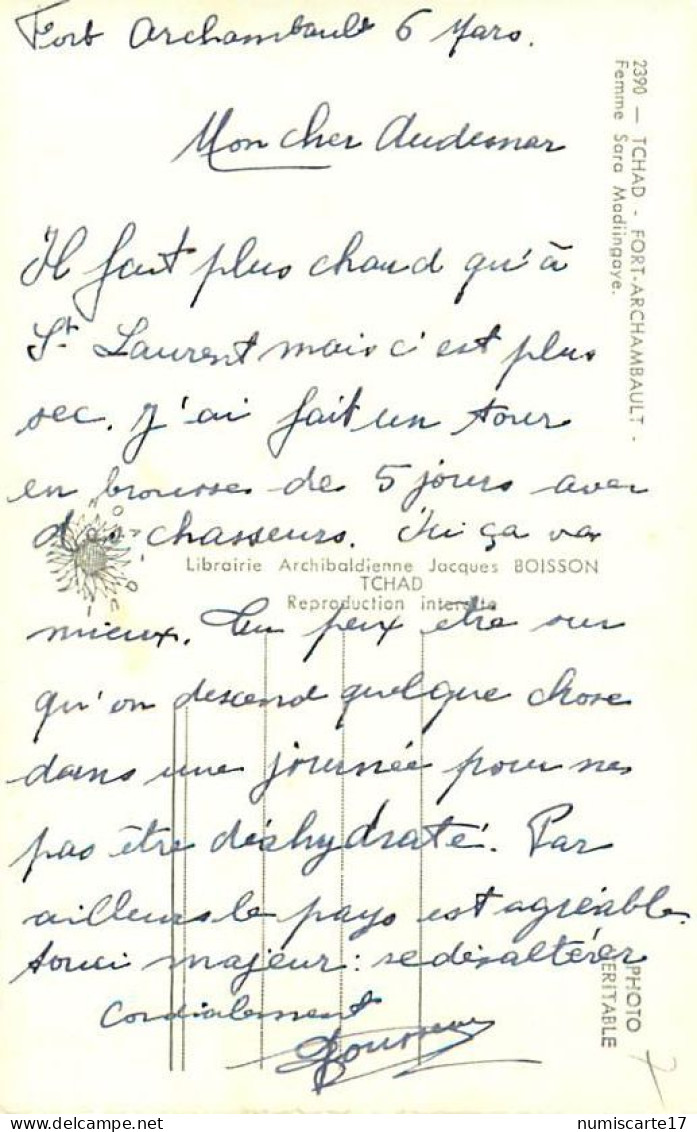 Fort Archambault 6 Mars.
Mon cher Audemar
Il fait plus chaud qu'à
St Laurent mais c'est plus
sec. J'ai fait un tour
en brousse de 5 jours avec
des chasseurs. Ici ça va
mieux. Tu peux être sur
qu'on descend quelque chose
dans une journée pour ne
pas être déshydraté. Par
ailleurs le pays est agréable.
souci majeur : se désaltérer
Cordialement
2390 — TCHAD - FORT-ARCHAMBAULT -
Femme Sara Madjingaye.
Librairie Archibaldienne Jacques BOISSON
TCHAD
Reproduction interdite
PHOTO
VERITABLE
Delcampe.net
numiscarte17